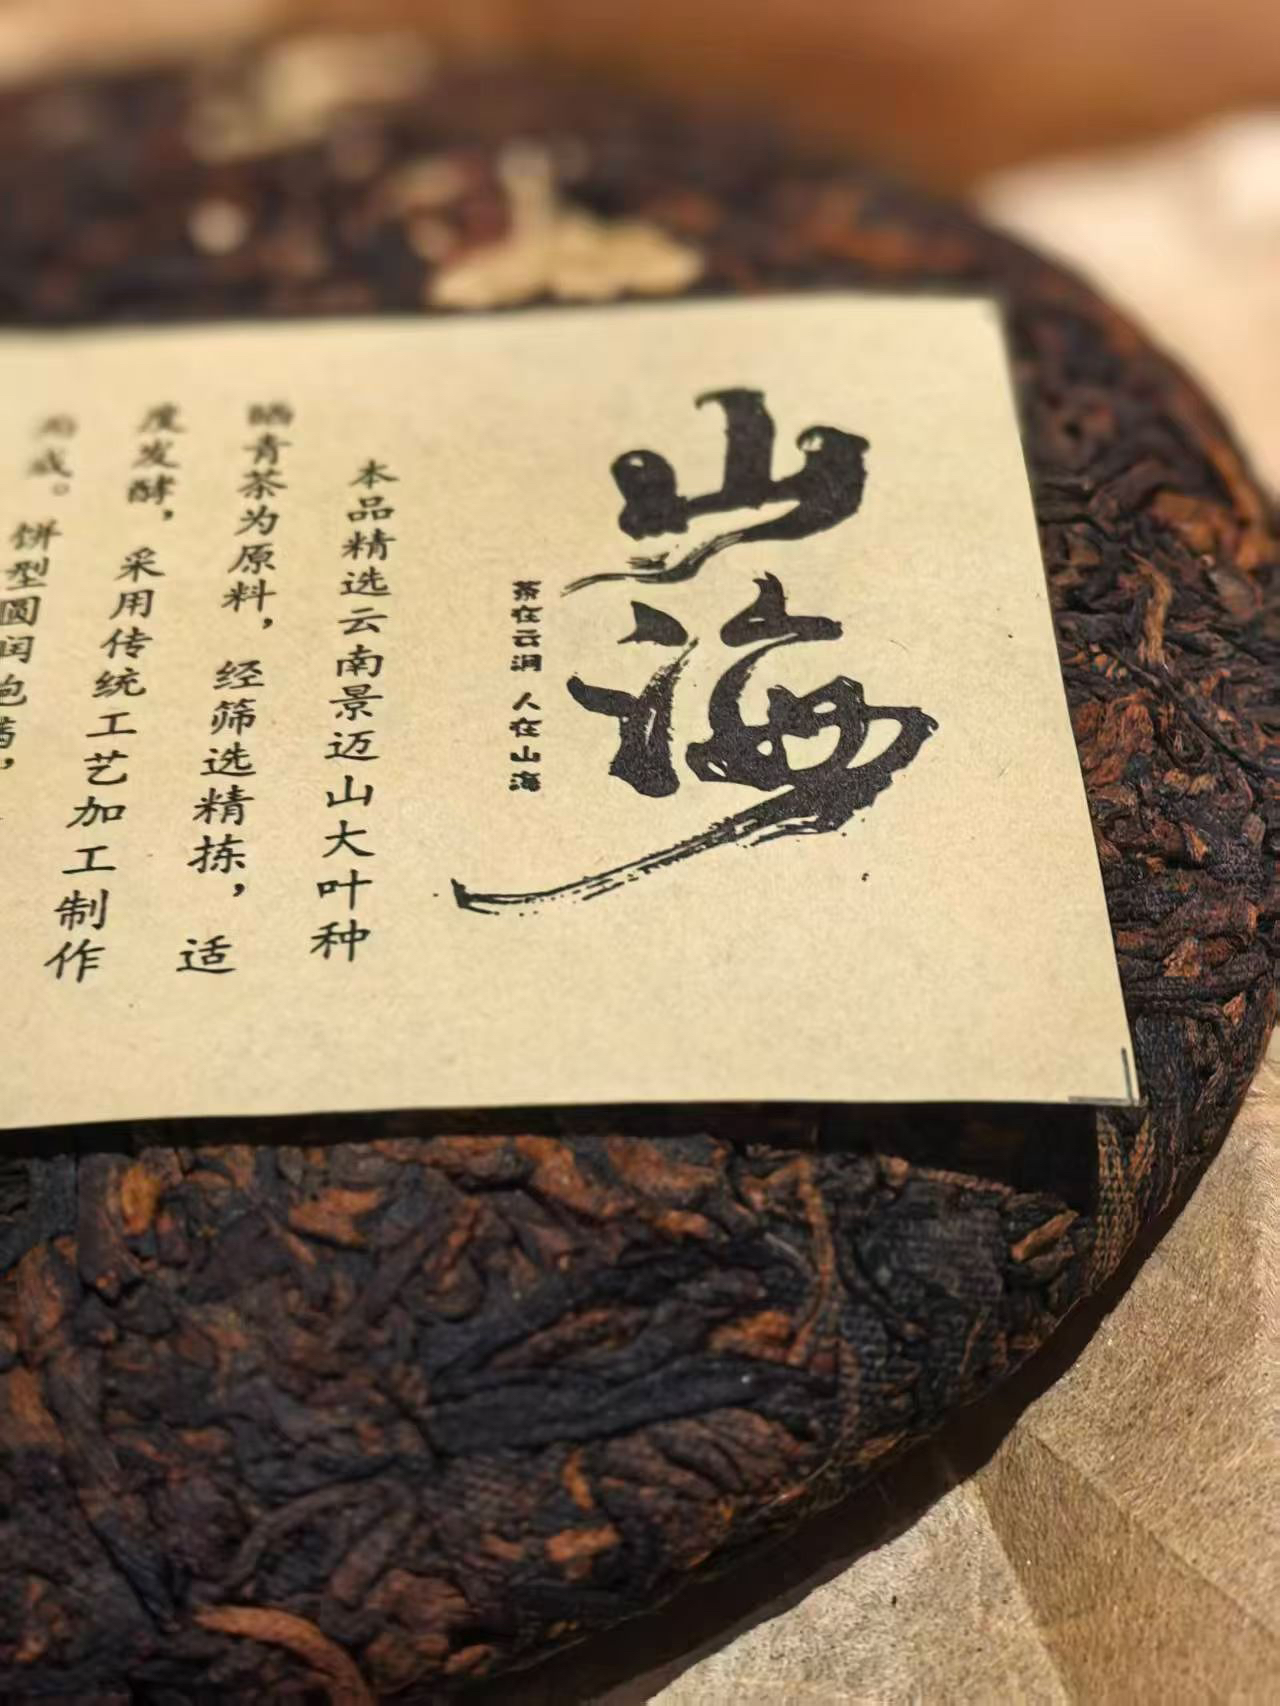 山海
茶在云涧 人在山海
本品精选云南景迈山大叶种
晒青茶为原料，经筛选精拣，适
度发酵，采用传统工艺加工制作
而成。饼型圆润饱满，